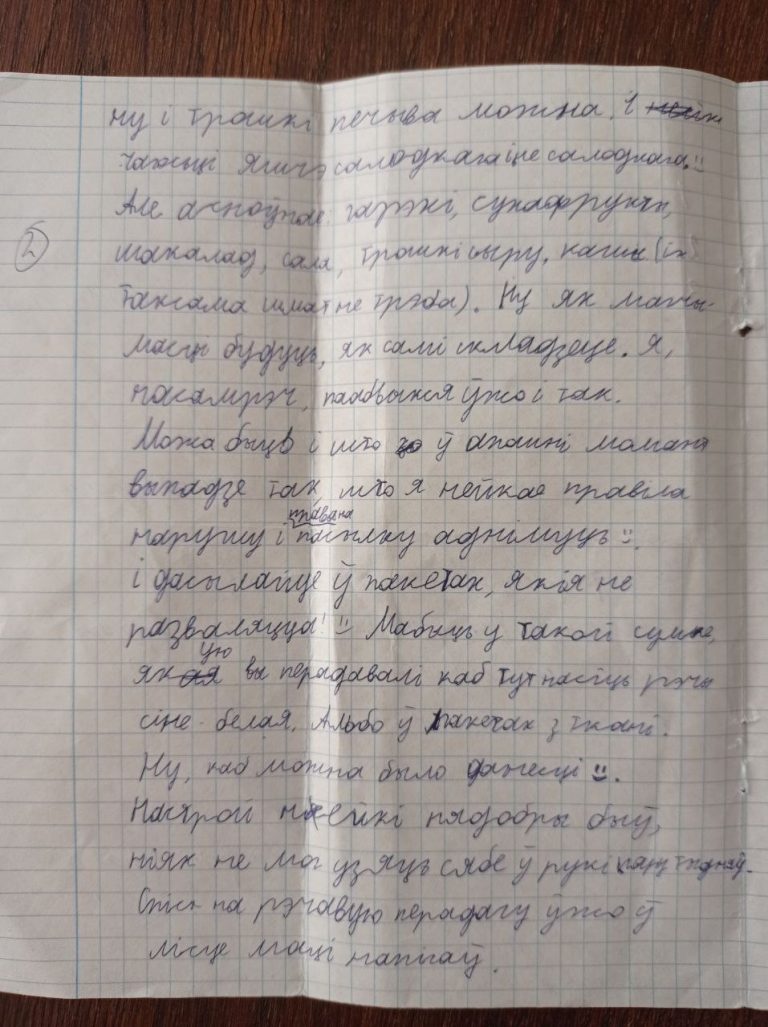 ну і трошкі печыва можна. І
чагосьці яшчэ салодкага і не салоднага. :)
Але асноўнае: гарэхі, сухафрукты,
2
шакалад, сала, трошкі сыру, кашы (іх
таксама шмат не трэба). Ну як магчы-
масць будуць, як самі складзеце. Я,
насамрэч, паабвыкся ўжо і так.
Можа быць і што ў апошні момант
выпадзе так, што я нейкае правіла
права на
нарушу і пасылку аднімуць :).
і дасылайце ў пакетах, якія не
разваляцца! :) Мабыць у такой сумке,
ую
якая вы перадавалі каб тут насіць рэчы
сіне-белая. Альбо ў пакетах з ткані.
Ну, каб можна было данесці :).
Настрой нейкі нядобры быў,
ніяк не мог узяць сябе ў рукі пару тыдняў.
Спіс на рэчавую перадачу ўжо ў
лісце маці напісаў.